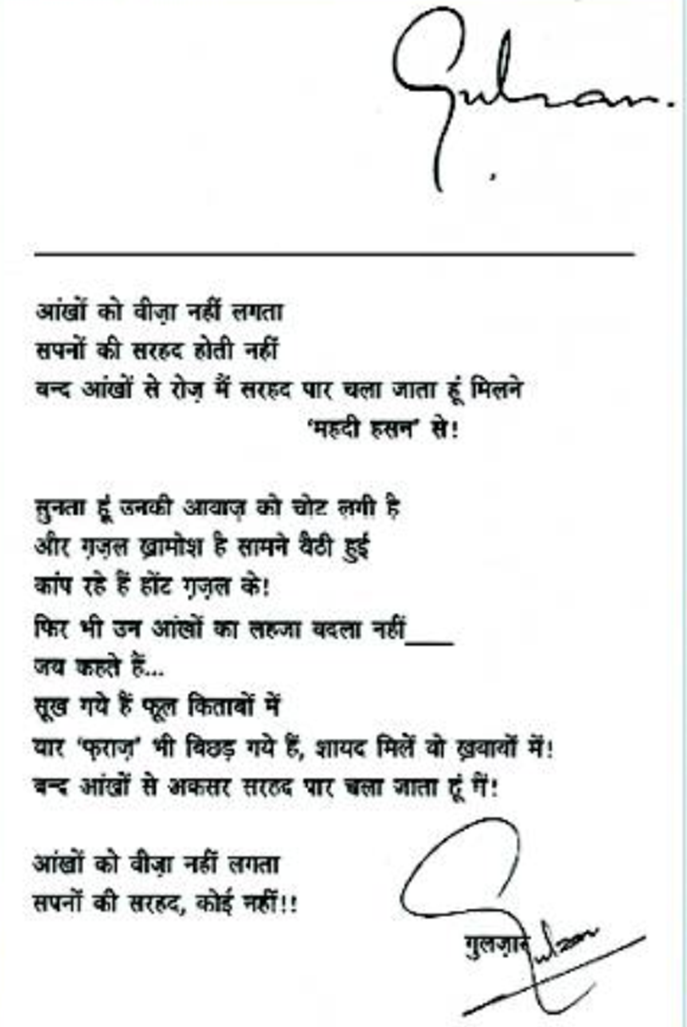 Gulzar.
आंखों को वीज़ा नहीं लगता
सपनों की सरहद होती नहीं
बन्द आंखों से रोज़ मैं सरहद पार चला जाता हूं मिलने
‘महदी हसन’ से!
सुनता हूं उनकी आवाज़ को चोट लगी है
और ग़ज़ल ख़ामोश है सामने बैठी हुई
कांप रहे हैं होंट ग़ज़ल के!
फिर भी उन आंखों का लहजा बदला नहीं____
जब कहते हैं...
सूख गये हैं फूल किताबों में
यार ‘फ़राज़’ भी बिछड़ गये हैं, शायद मिलें वो ख़्वाबों में!
बन्द आंखों से अकसर सरहद पार चला जाता हूं मैं!
आंखों को वीज़ा नहीं लगता
सपनों की सरहद, कोई नहीं!!
गुलज़ार
Gulzar